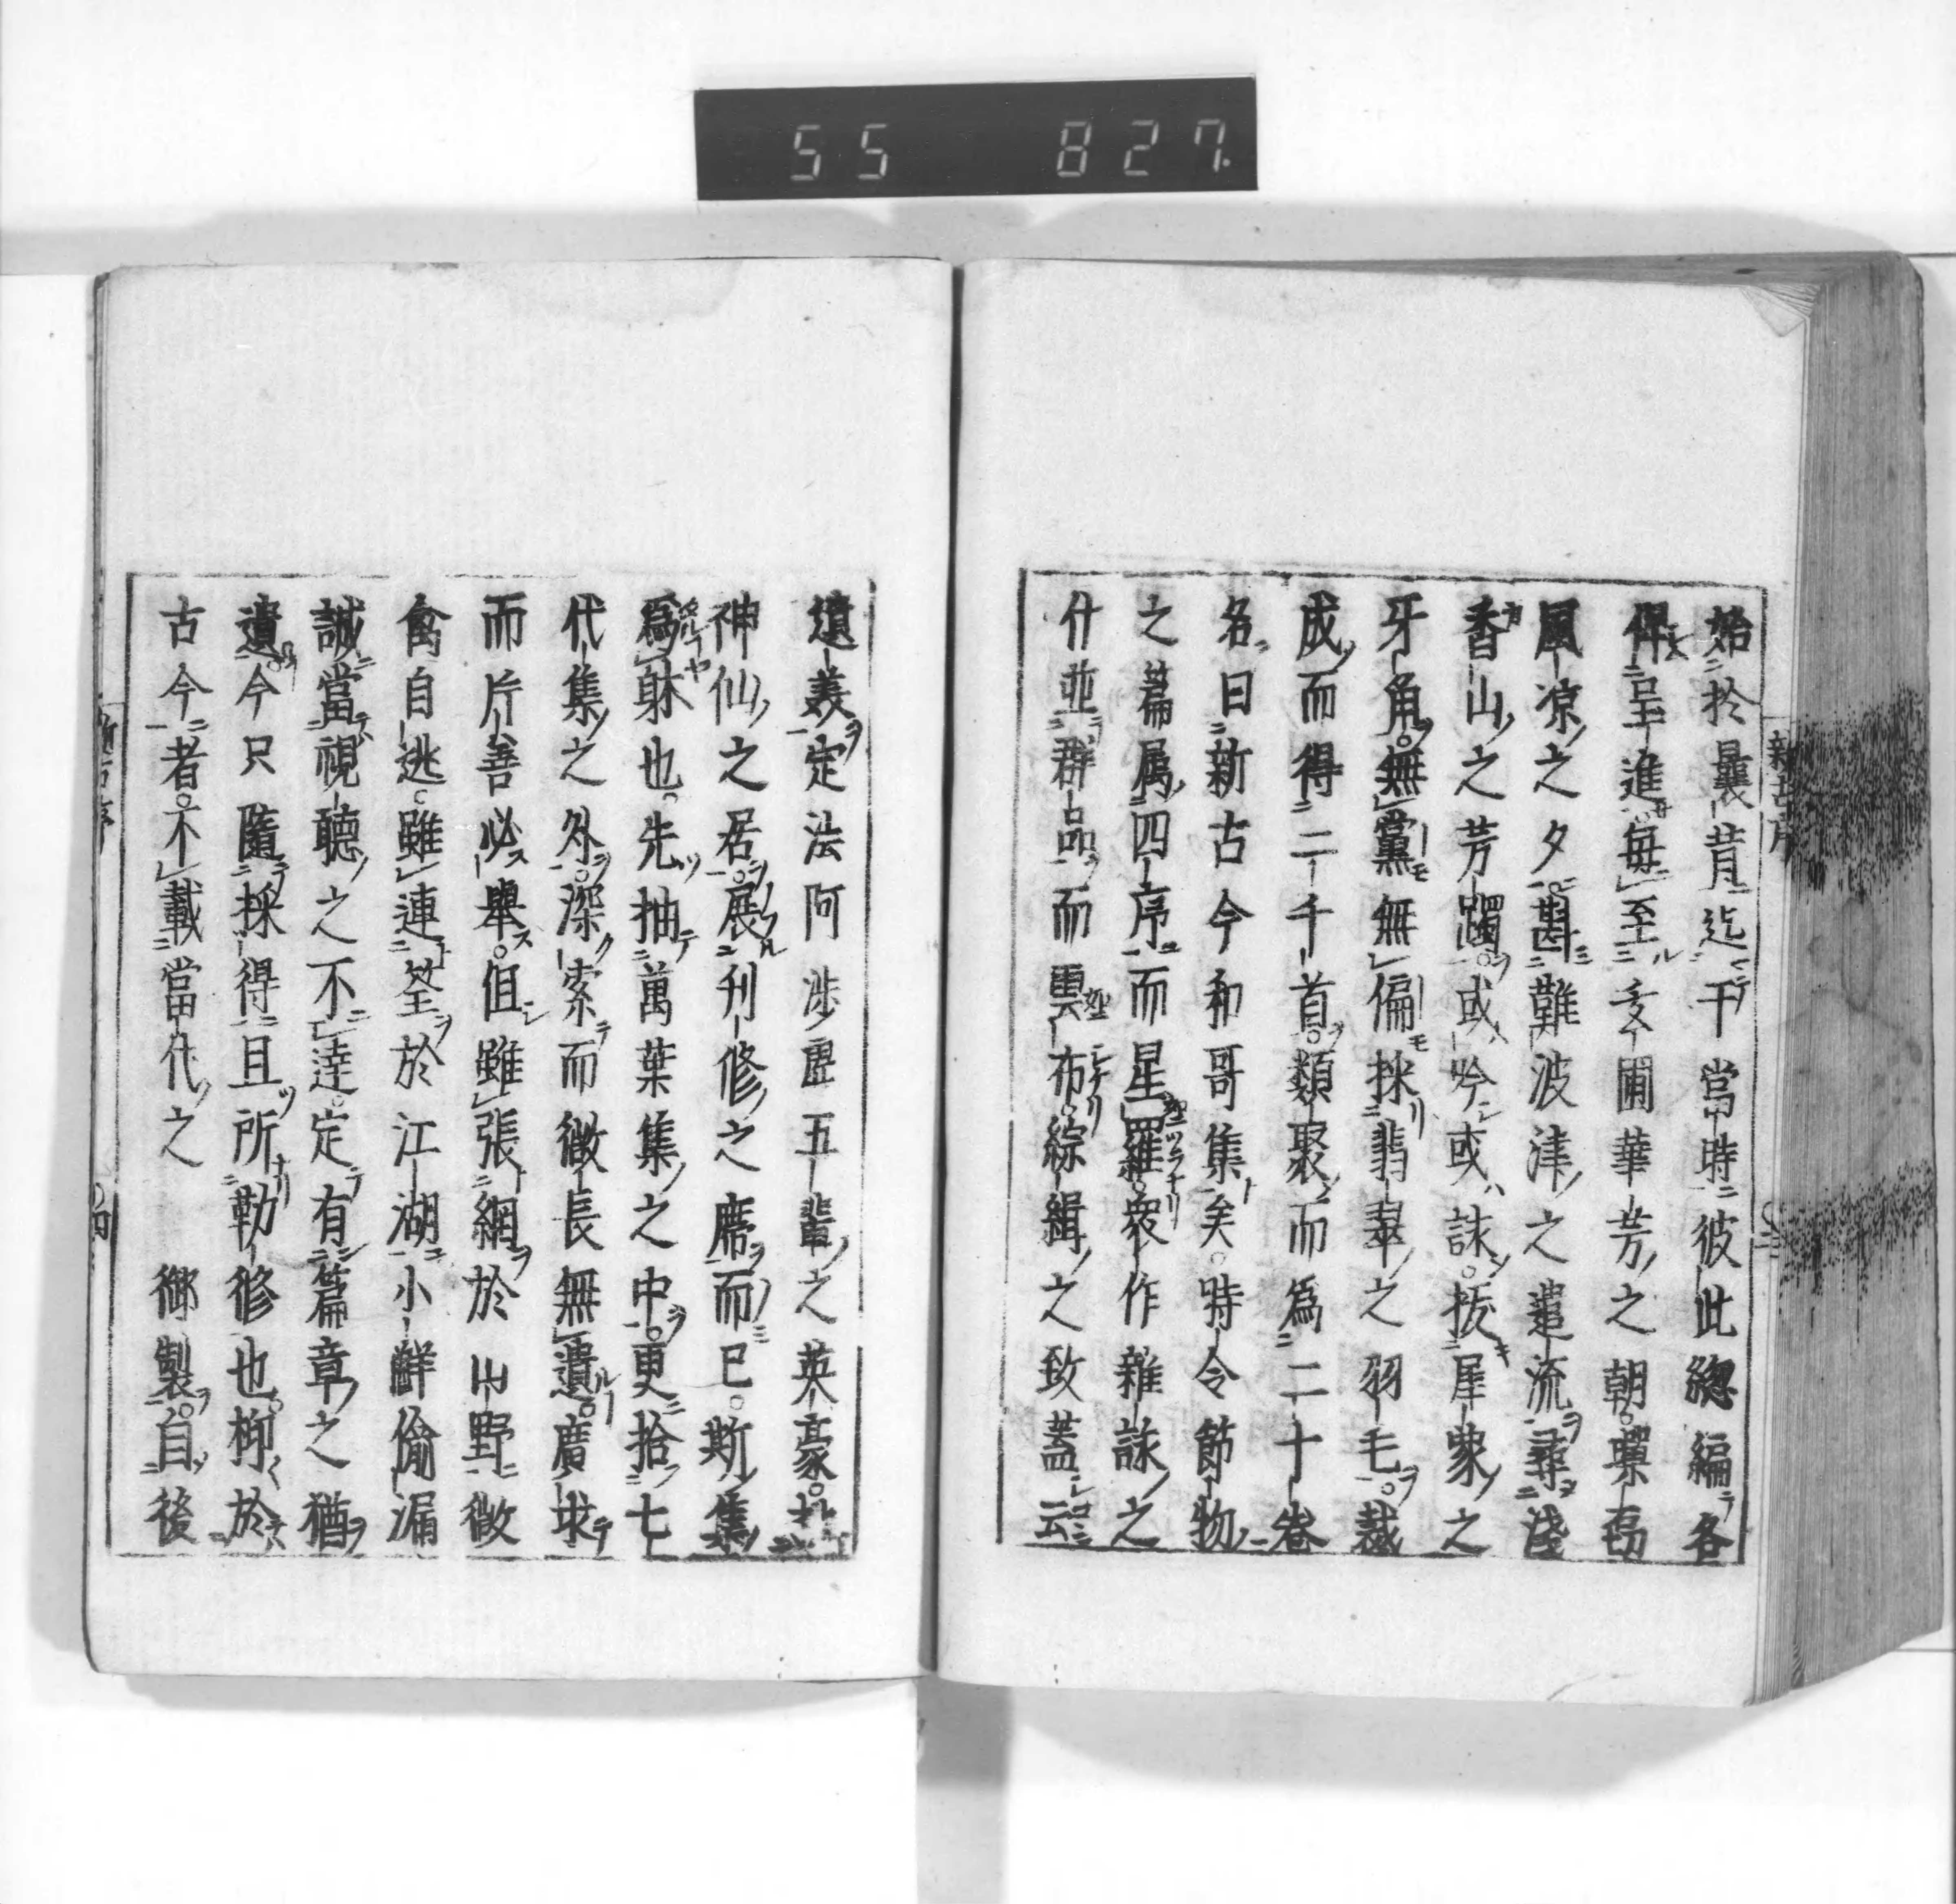 55 827.
始於曩昔迄于當時彼此緫編各
俾呈進毎至玄圃華芳之朝璅砌
風凉之夕斟難波津之遺流尋淺
香山之芳躅或吟或詠抜犀象之
牙角無黨無偏採翡翠之羽毛裁
成而得二千首類聚而爲二十巻
名曰新古今和哥集矣時令節物
之篇属四序而星羅衆作雜詠之
什並群品而雲布綜緝之致蓋云
遺美定法河渉虚五輩之英豪
神仙之居展刋修之席而已斯集
爲躰也先抽萬葉集之中更拾七
代集之外深索而微長無遺廣求
而片善必擧但雖張網於山野微
禽自逃雖連筌於江湖小鮮偷漏
誠當視聴之不達定有篇章之猶
遺今只隨採得且所勒修也抑於
古今者不載當代之 御製自後